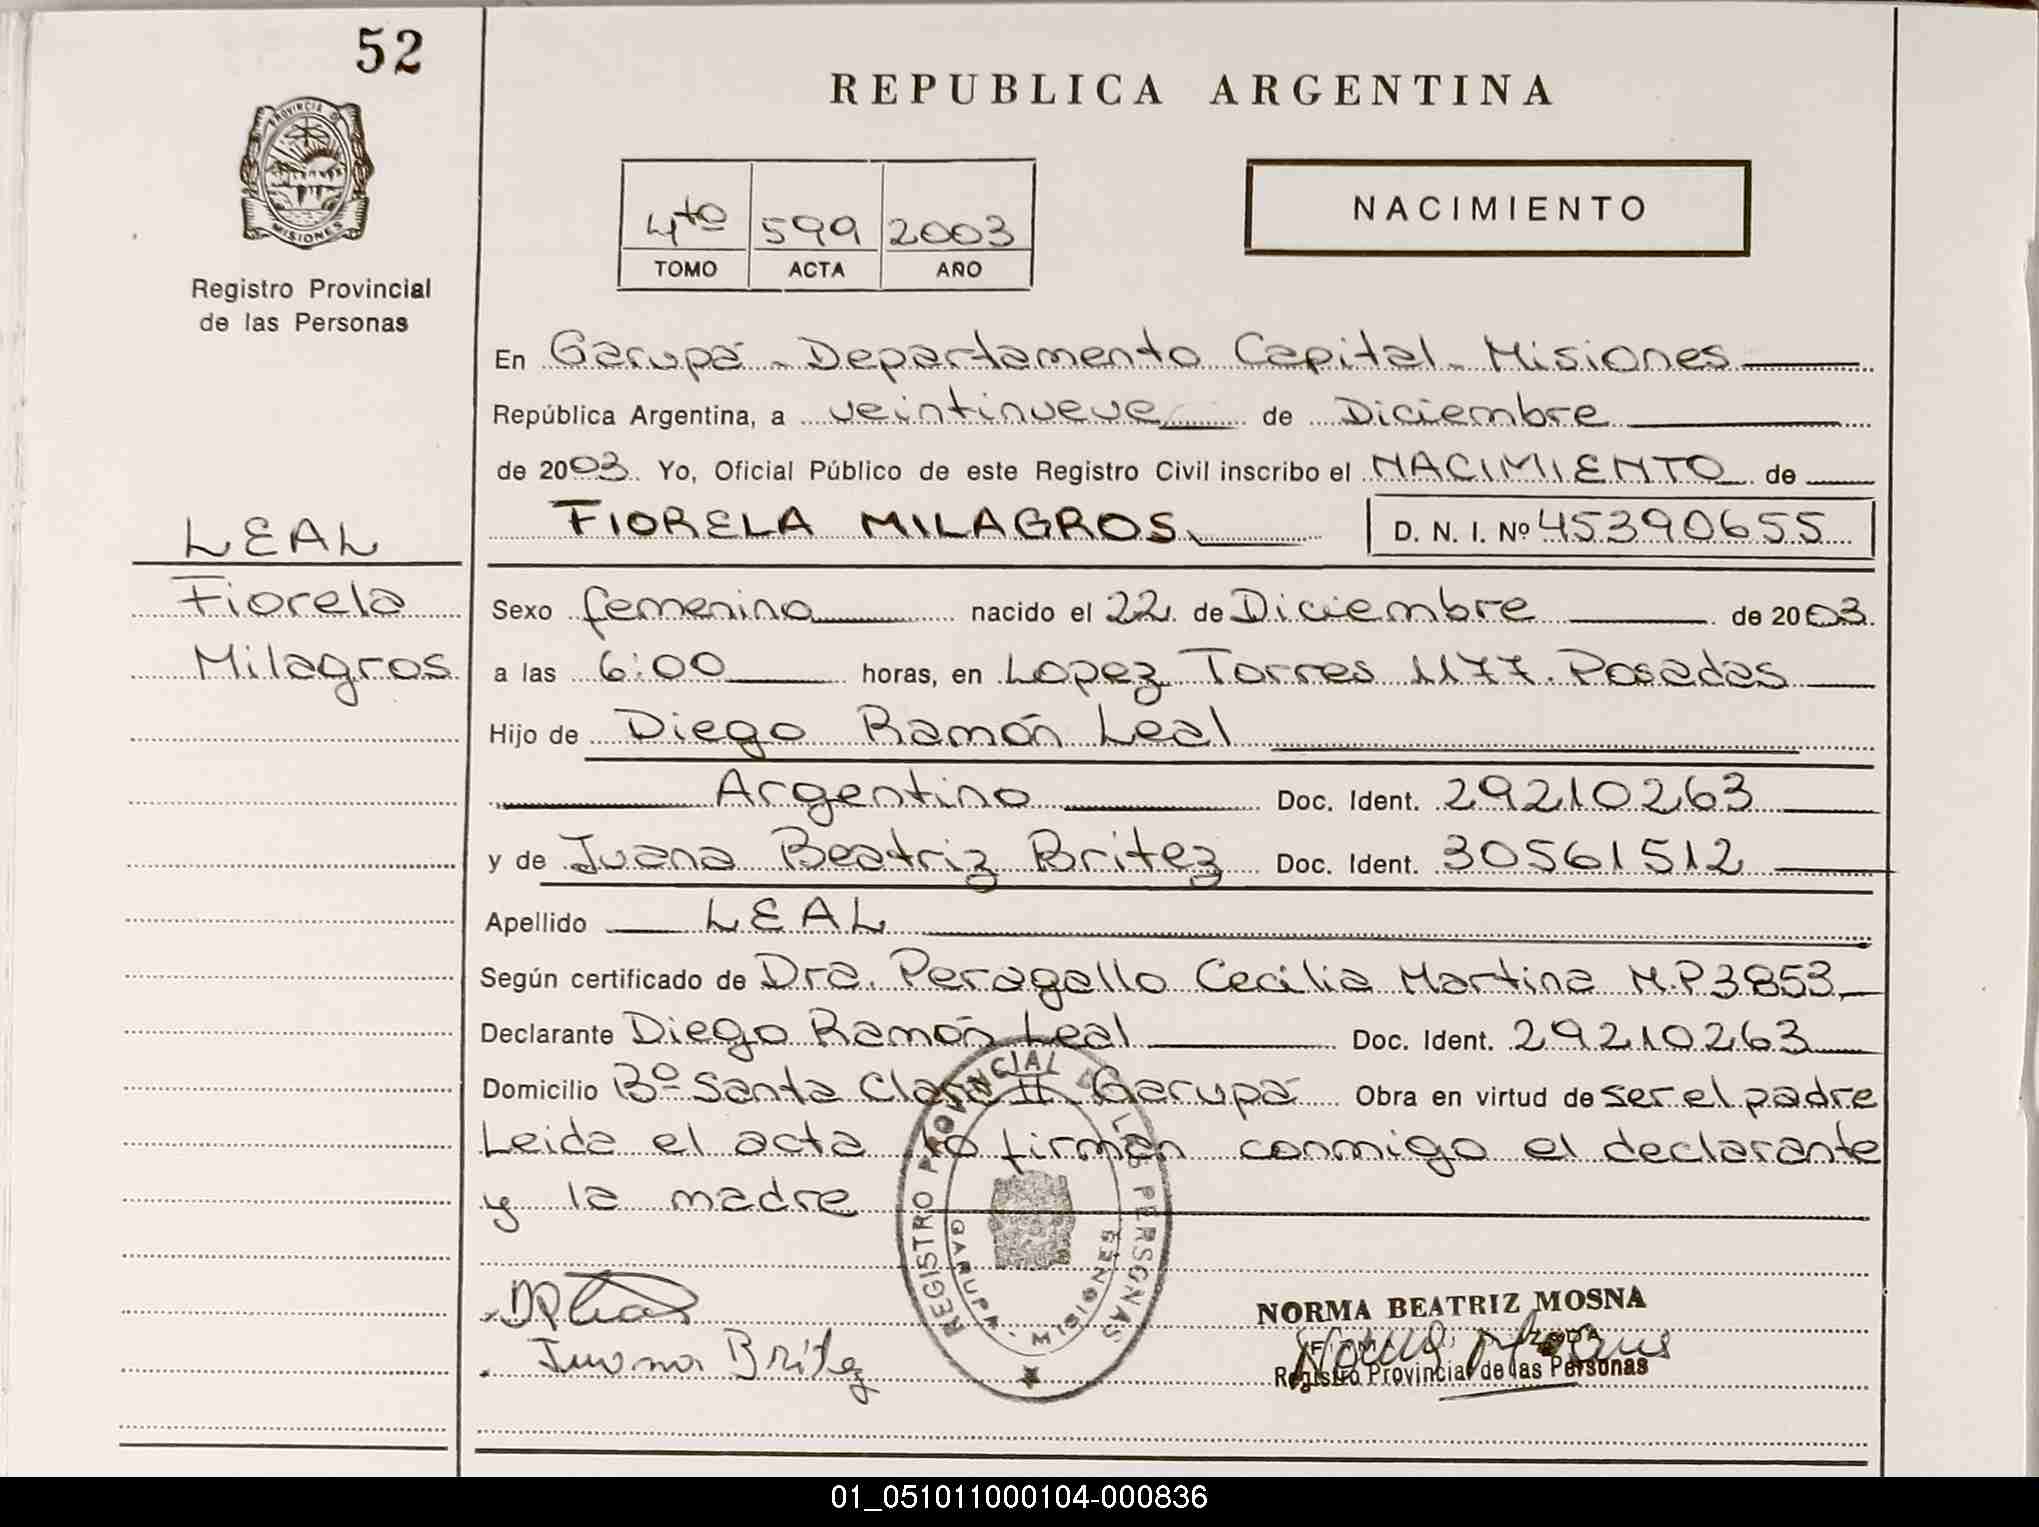 52
PROVINCIA DE
MISIONES
Registro Provincial
de las Personas
LEAL
Fiorela
Milagros
REPUBLICA ARGENTINA
4to 599 2003
TOMO ACTA AÑO
NACIMIENTO
En Garupá - Departamento Capital - Misiones
República Argentina, a veintinueve de Diciembre
de 2003. Yo, Oficial Público de este Registro Civil inscribo el NACIMIENTO de
FIORELA MILAGROS D. N. I. Nº 45390655
Sexo femenino nacido el 22 de Diciembre de 2003
a las 6:00 horas, en Lopez Torres 1177. Posadas
Hijo de Diego Ramón Leal
Argentino Doc. Ident. 29210263
y de Juana Beatriz Britez Doc. Ident. 30561512
Apellido LEAL
Según certificado de Dra. Peragallo Cecilia Martina M.P 3853
Declarante Diego Ramón Leal Doc. Ident. 29210263
Domicilio Bº Santa Clara II Garupá Obra en virtud de ser el padre
Leida el acta la firman conmigo el declarante
y la madre
REGISTRO PROVINCIAL DE LAS PERSONAS
GARUPA - MISIONES
Juana Britez
NORMA BEATRIZ MOSNA
Registro Provincial de las Personas
01_051011000104-000836